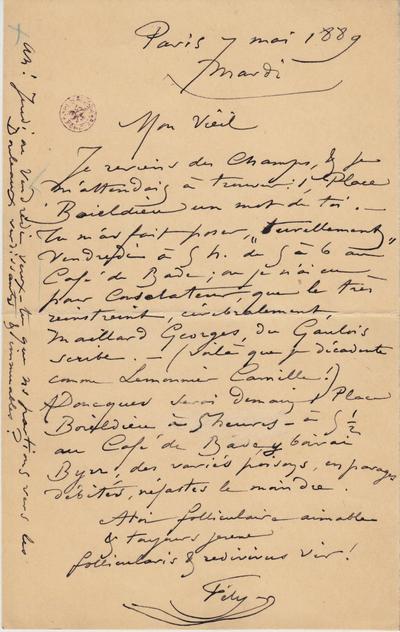 Paris 7 mai 1889
Mardi
Mon Vieil
Je reviens des Champs, & je
m'attendais à trouver, 1, Place
Boieldieu un mot de toi. —
Tu m'as fait poser, "
Vendredi à 5 h. de 5 à 6 au
Café de Bade; où je n'ai eu —
pour Consolateur, que le très
restreint, cérébralement,
Maillard Georges, du Gaulois
scribe. — (Voilà que je décadente
comme Lemonnier Camille!)
Adoncques serai demain 1 Place
Boieldieu à 5 heures — à 5 1/2
au Café de Bade y boirai
Byrr, des variés poisons, en parages
débités, néfastes le moindre.
A toi folliculaire aimable
& toujours jeune
follicularis & redivivus vir!
Fély
Ah! Jeudi ou Vendredi veux-tu que nous partions vers les